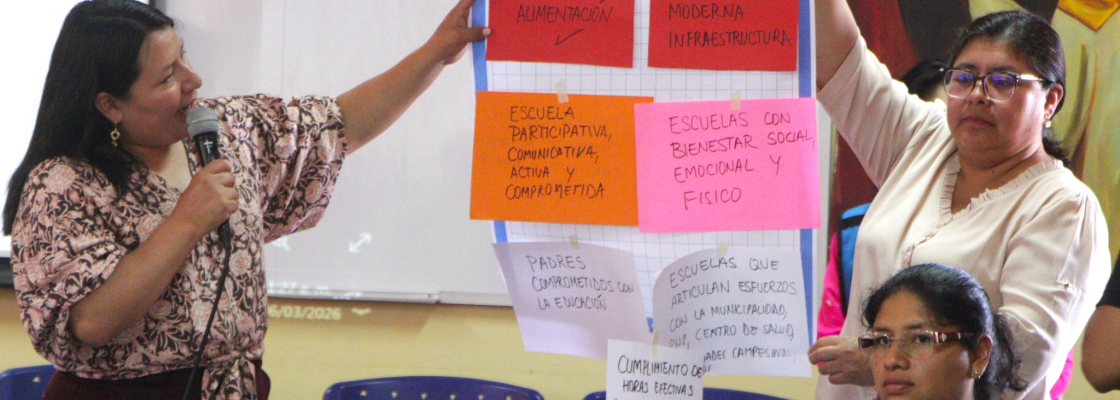 ALIMENTACIÓN
MODERNA
INFRAESTRUCTURA
ESCUELA
PARTICIPATIVA,
COMUNICATIVA,
ACTIVA Y
COMPROMETIDA
ESCUELAS CON
BIENESTAR SOCIAL,
EMOCIONAL Y
FISICO
PADRES
COMPROMETIDOS CON
LA EDUCACIÓN
ESCUELAS QUE
ARTICULAN ESFUERZOS
CON LA MUNICIPALIDAD,
PNP, CENTRO DE SALUD,
CAMPESINAS
CUMPLIMIENTO DE
HORAS EFECTIVAS
06/03/2026